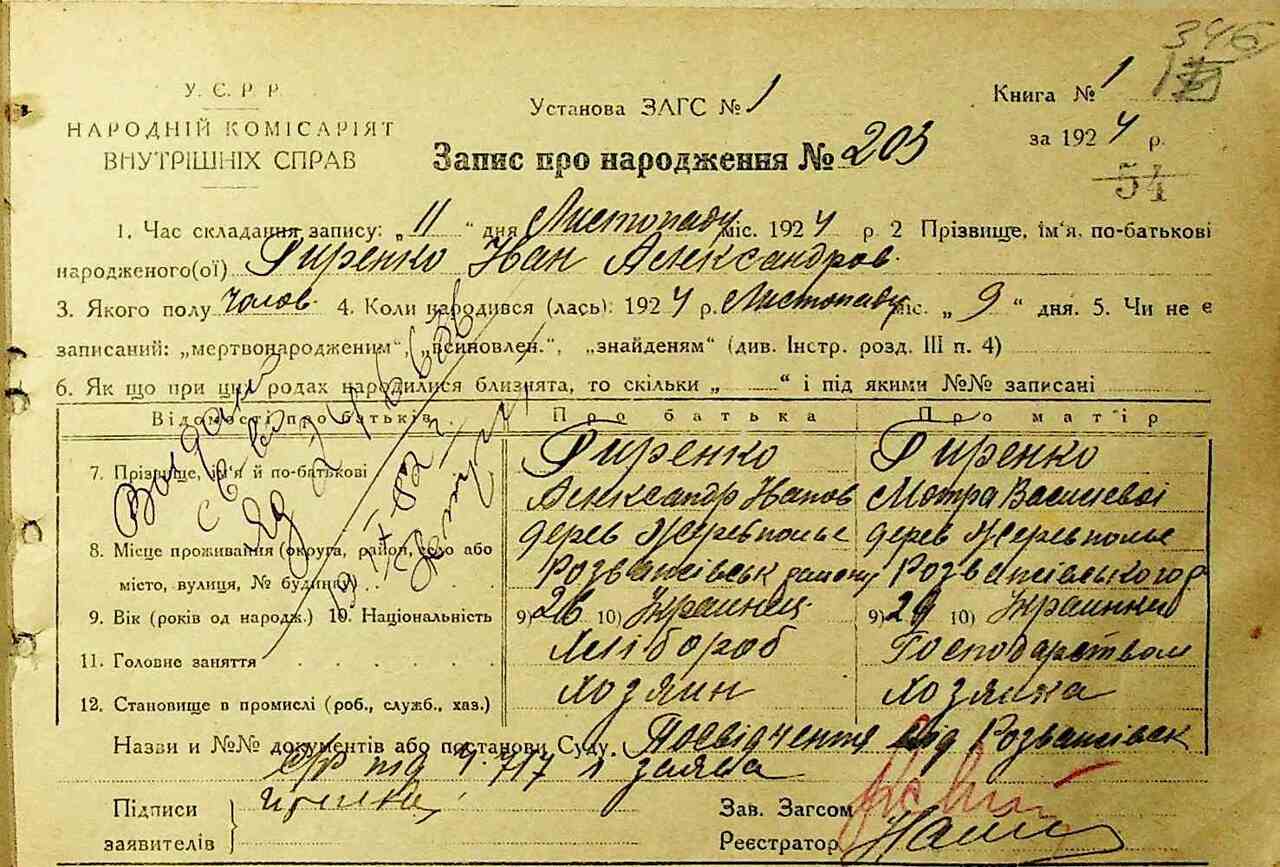 346
У. Є. Р. Р.
НАРОДНІЙ КОМІСАРІЯТ
ВНУТРІШНІХ СПРАВ
Установа ЗАГС № 1
Книга № 1
за 1924 р.
54
Запис про народження № 203
1. Час складання запису: „11“ дня Листопаду міс. 1924 р. 2 Прізвище, ім'я, по-батькові
народженого(ої) Гиренко Иван Александров.
3. Якого полу Чолов. 4. Коли народився (лась): 1924 р. Листопаду міс. „9“ дня. 5. Чи не є
записаний: „мертвонародженим“, „всиновлен.“, „знайденям“ (див. Інстр. розд. III п. 4)
6. Як що при цих родах народилися близнята, то скільки „ “ і під якими №№ записані
Відомості про батьків. Про батька Про матір
7. Прізвище, ім'я й по-батькові Гиренко Гиренко
Александр Иванов Мотра
8. Місце проживання (округа, район, село або дерев Жеревполье дерев Жеревполье
місто, вулиця, № будинку) району
9. Вік (років од народж.) 10. Національність 9) 26 10) Украинец 9) 29 10)
11. Головне заняття Хлібороб Господарством
12. Становище в промислі (роб., служб., хаз.) Хозяин Хозяйка
Назви и №№ документів або постанови Суду. Посвідчення від
с/р під ч. 717 заява
Підписи
заявителів
Зав. Загсом
Реєстратор